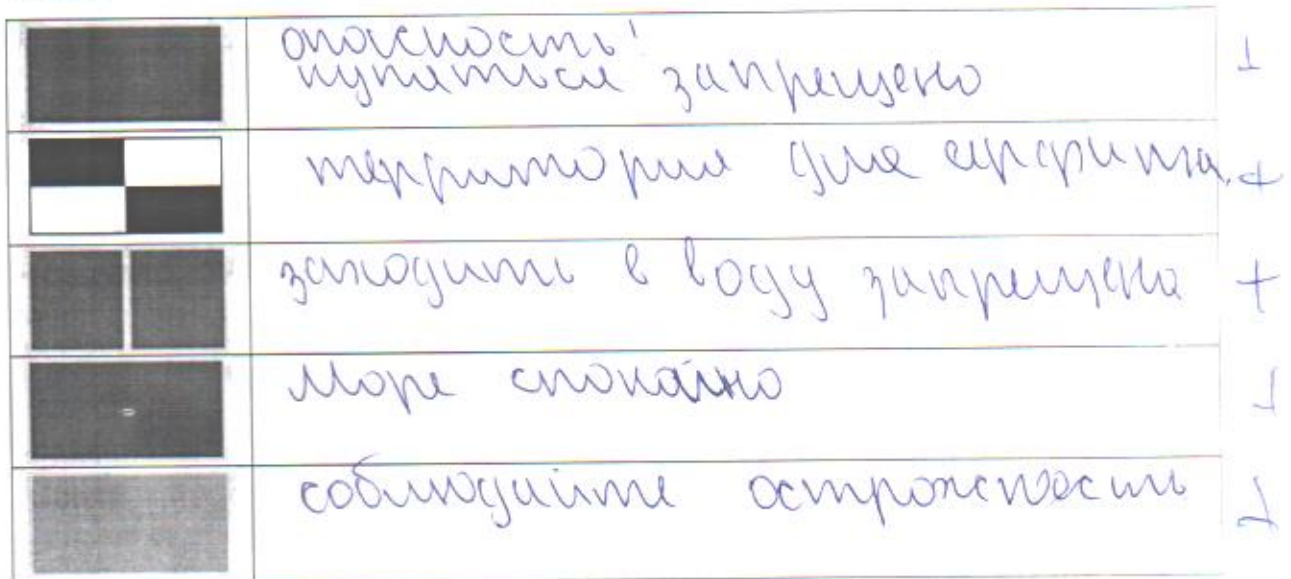 опасность!
купаться запрещено
территория для серфинга.
заходить в воду запрещено
Море спокойно
соблюдайте острожность